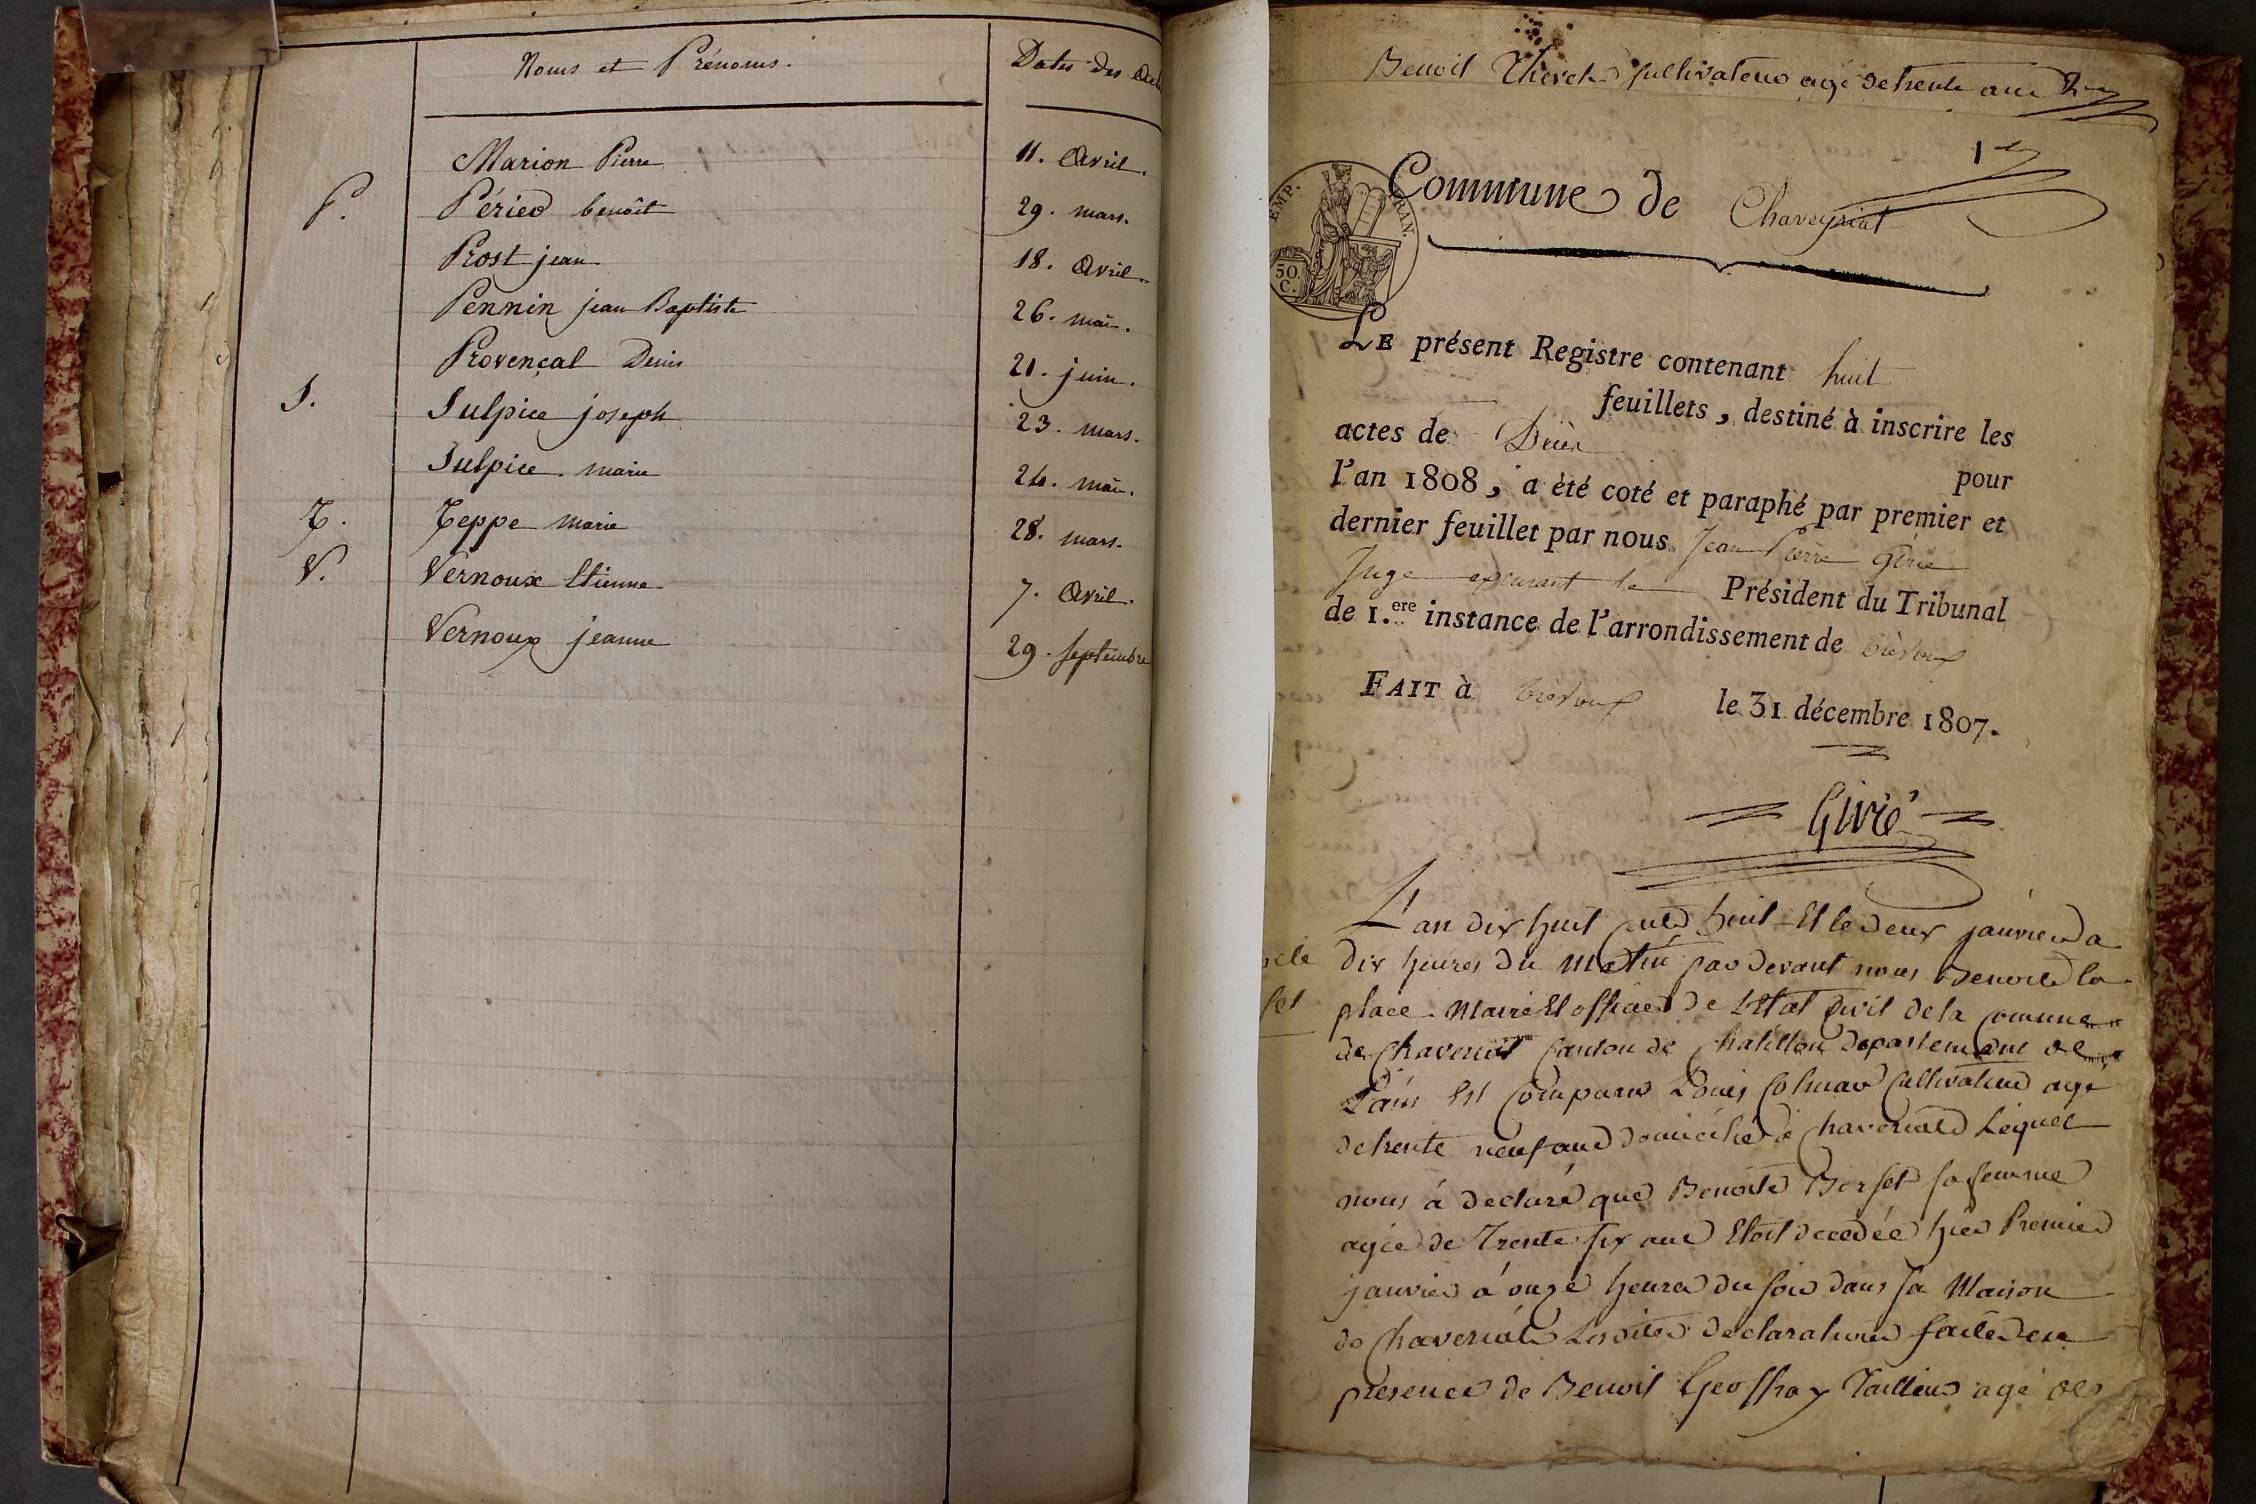 Noms et Prénoms. Dates des
Marion Pierre 11. Avril.
P. Périer benoît 29. mars.
Prost jean 18. Avril.
Pennin jean Baptiste 26. mai.
Provençal Denis 21. juin.
S. Sulpice joseph 23. mars.
Sulpice marie 24. mai.
T. Teppe marie 28. mars.
V. Vernoux Etienne 7. Avril.
Vernoux jeanne 29. septembre
Benoit cultivateur agé de trente ans
1er
EMP. FRAN.
50. C.
Commune de Chaveyriat
LE présent Registre contenant huit
feuillets, destiné à inscrire les
actes de Décès pour
l'an 1808, a été coté et paraphé par premier et
dernier feuillet par nous Jean Pierre Givié
Juge exerçant le Président du Tribunal
de 1.ere instance de l'arrondissement de trévoux
FAIT à trévoux le 31 décembre 1807.
Givié
L'an dix huit cent huit Et le deux janvier a
dix heures du matin par devant nous Benoit la
place Maire Et officier de L'Etat Civil de la commune
de Chaveriat Canton de Chatillon departement de
L'ain Est Comparu Louis cultivateur agé
de trente neuf ans domicilié à Chaveriat Lequel
nous à declaré que Benoite sa femme
agée de Trente six ans Etoit decedée hier Premier
janvier à onze heures du soir dans sa Maison
de Chaveriat Lesdites declarations faites en
presence de Benoit Geoffray Tailleur agé de